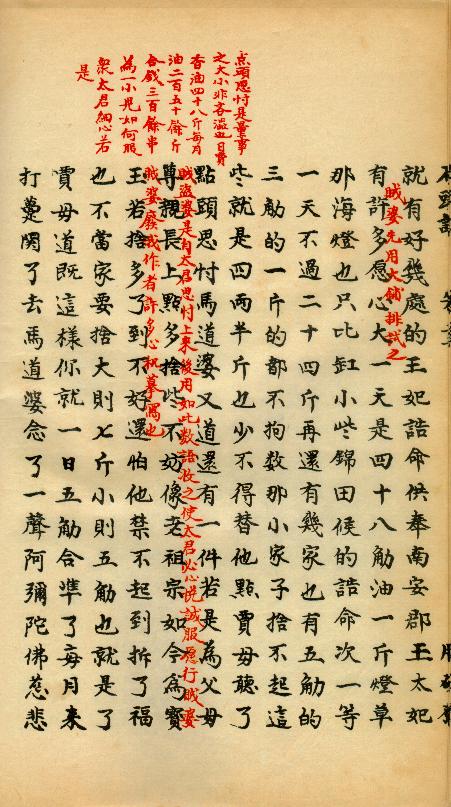 点頭思忖是量事
之大小非吝澁也日費
香油四十八斤每月
油二百五十餘斤
合錢三百餘串
為一小児如何服
衆太君細心若
是
就有好幾處的王妃誥命供奉南安郡王太妃
賊婆先用大鋪排試之
有許多愿心大一天是四十八觔油一斤燈草
那海燈也只比缸小些錦田候的誥命次一等
一天不過二十四斤再還有幾家也有五觔的
三觔的一斤的都不拘数那小家子捨不起這
些就是四兩半斤也少不得替他點賈母聽了
點頭思忖馬道婆又道還有一件若是為父母
賊盗婆是自太君思忖上來後用如此数語收之使太君必心悦誠服愿行賊婆
尊親長上點多捨些不妨像老祖宗如今為寳
賊婆廢我作者許多心机摹寫也
玉若捨多了到不好還怕他禁不起到折了福
也不當家要捨大則七斤小則五觔也就是了
賈母道既這樣你就一日五觔合準了每月来
打躉関了去馬道婆念了一聲阿彌陀佛慈悲